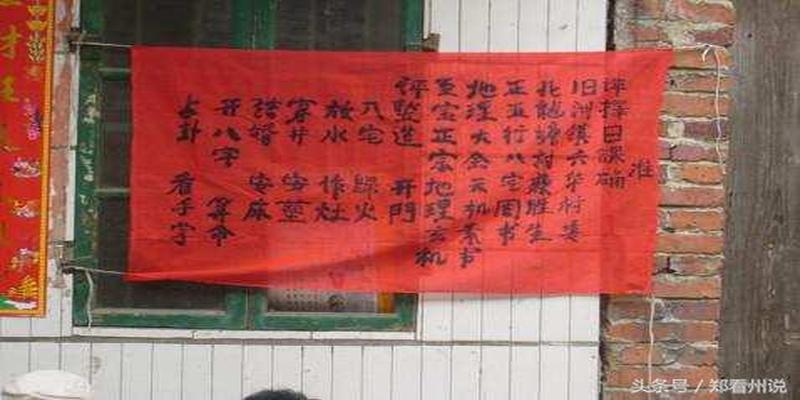 评择日课确准
旧州镇六华村委
孔龍塘村蘇胜生
正五行八宅周书
地理大全天机素书
至宝正宗地理玄机
评竖造 开門
八宅 火
放水 作灶
穿井 安
结婚 安床
开八字 算命
占卦 看手字
才旺
头条号／郑看州说